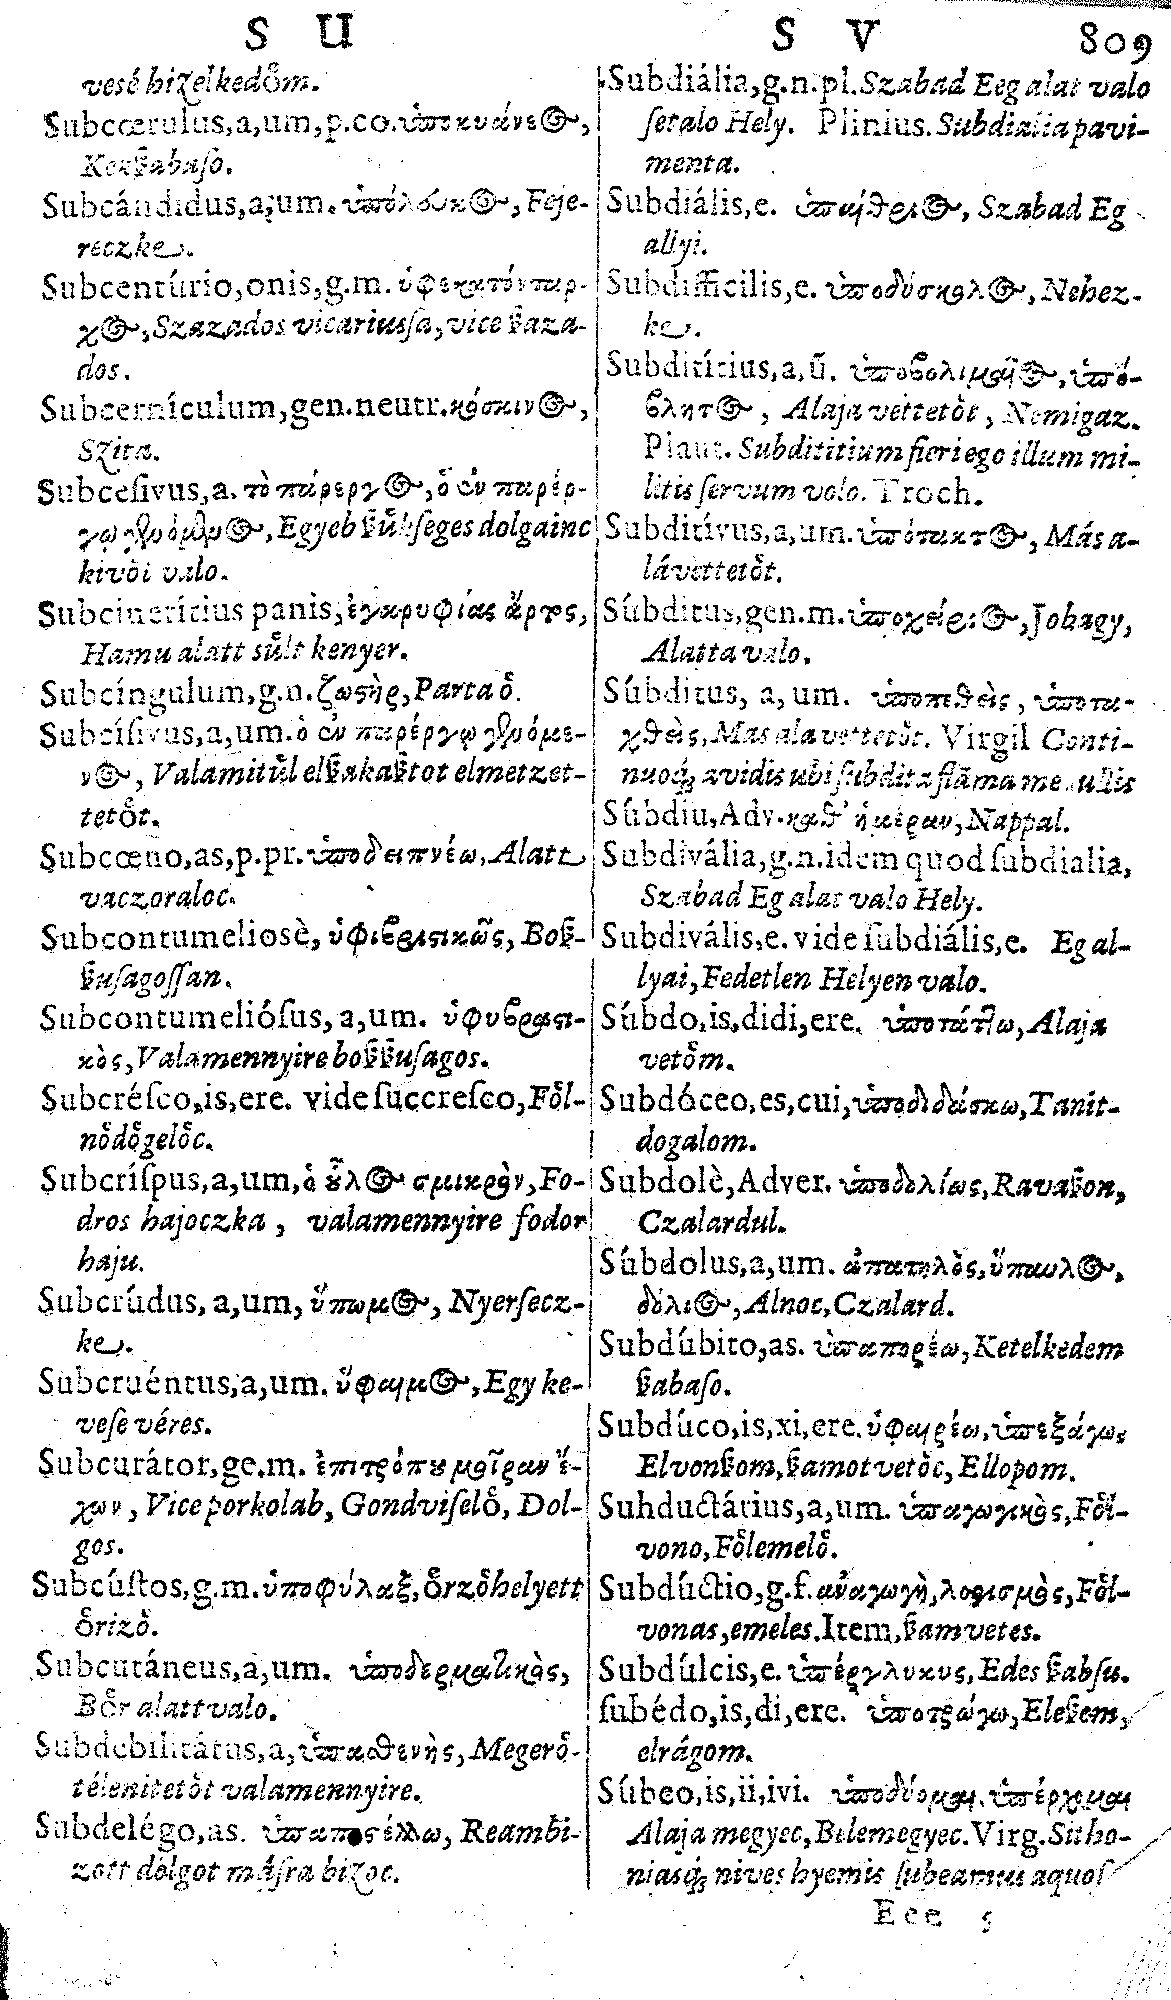 S U
S V 809
vesé bizelkedo̊m.
Subcœrulus, a, um, p. co. ὑποκυάνεος,
Kekßabaſo.
Subcándidus, a, um. ὑπόλευκος, Feje-
reczke.
Subcentúrio, onis, g. m. ὑφεκατόνταρ-
χος, Szazados vicariusſa, vice ßaza-
dos.
Subcernículum, gen. neutr. κόσκινος,
Szita.
Subceſivus, a. τὸ πάρεργος, ὁ ἐν παρέρ-
γῳ γενόμενος, Egyeb ßu̇kſeges dolgainc
kivo̊l valo.
Subcinerítius panis, ἐγκρυφίας ἄρτος,
Hamu alatt su̇lt kenyer.
Subcíngulum, g. n. ζωστὴρ, Parta o̊.
Subcíſivus, a, um. ὁ ἐν παρέργῳ γενόμε-
νος, Valamitu̇l elßakaßtot elmetzet-
teto̊t.
Subcœno, as, p. pr. ὑποδειπνέω, Alatt
vaczoraloc.
Subcontumeliosè, ὑφυβριστικῶς, Boß-
ßuſagoſſan.
Subcontumelióſus, a, um. ὑφυβριστι-
κὸς, Valamennyire boßßuſagos.
Subcréſco, is, ere. vide ſuccreſco, Fo̊l-
no̊do̊gelo̊c.
Subcríſpus, a, um, ὁ οὖλος σμικρὸν, Fo-
dros hajoczka, valamennyire fodor
haju.
Subcrúdus, a, um, ὕπωμος, Nyerſecz-
ke.
Subcruéntus, a, um. ὕφαιμος, Egy ke-
veſe véres.
Subcurátor, ge. m. ἐπιτρόπου μοῖραν ἔ-
χων, Vice porkolab, Gondviſelo̊, Dol-
gos.
Subcúſtos, g. m. ὑποφύλαξ, o̊rzo̊helyett
o̊rizo̊.
Subcutáneus, a, um. ὑποδερματικὸς,
Bo̊r alatt valo.
Subdebilitátus, a, ὑπασθενὴς, Megero̊-
téleniteto̊t valamennyire.
Subdelégo, as. ὑπαποστέλλω, Reambi-
zott dolgot máſra bizoc.
Subdiália, g. n. pl. Szabad Eeg alat valo
ſetalo Hely. Plinius. Subdialia pavi-
menta.
Subdiális, e. ὑπαίθριος, Szabad Eg
allyi.
Subdifficilis, e. ὑποδύσκολος, Nehez-
ke.
Subditítius, a, ũ. ὑποβολιμαῖος, ὑπό-
βλητος, Alaja vetteto̊t, Nemigaz.
Plaut. Subdititium fieri ego illum mi-
litis ſervum volo. Troch.
Subditívus, a, um. ὑπότακτος, Más a-
lávetteto̊t.
Súbditus, gen. m. ὑποχείριος, Jobagy,
Alatta valo.
Súbditus, a, um. ὑποτεθεὶς, ὑποτα-
χθεὶς, Mas ala vetteto̊t. Virgil Conti-
nuoq́; avidis ubi ſubdita flãma medullis
Súbdiu, Adv. καθ' ἡμέραν, Nappal.
Subdivália, g. n. idem quod ſubdialia,
Szabad Eg alat valo Hely.
Subdivális, e. vide ſubdiális, e. Eg al-
lyai, Fedetlen Helyen valo.
Súbdo, is, didi, ere. ὑποτάττω, Alaja
veto̊m.
Subdóceo, es, cui, ὑποδιδάσκω, Tanit-
dogalom.
Subdolè, Adver. ὑποδολίως, Ravaßon,
Czalardul.
Súbdolus, a, um. ἀπατηλὸς, ὕπουλος,
δόλιος, Alnoc, Czalard.
Subdúbito, as. ὑπαπορέω, Ketelkedem
ßabaſo.
Subdúco, is, xi, ere. ὑφαιρέω, ὑπεξάγω,
Elvonßom, ßamot veto̊c, Ellopom.
Suhductárius, a, um. ὑπαγωγικὸς, Fo̊l-
vono, Fo̊lemelo̊.
Subdúctio, g. f. ἀναγωγὴ, λογισμὸς, Fo̊l-
vonas, emeles. Item, ßamvetes.
Subdúlcis, e. ὑπέργλυκυς, Edes ßabſu.
ſubédo, is, di, ere. ὑποτρώγω, Eleßem,
elrágom.
Súbeo, is, ii, ivi. ὑποδύομαι, ὑπέρχομαι
Alaja megyec, Belemegyec. Virg. Sitho-
niasq́; nives hyemis ſubeamus aquoſ
Eee 5